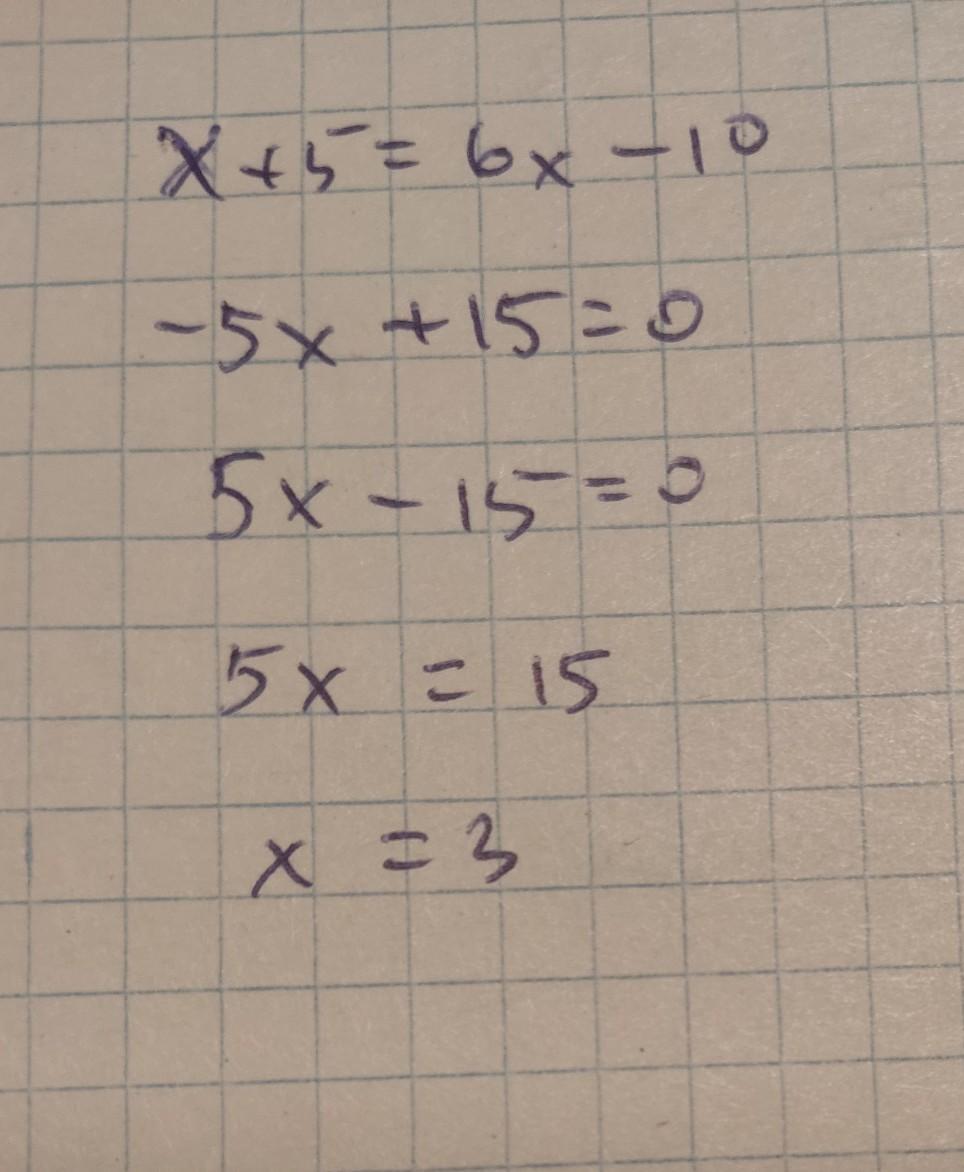 x + 5 = 6x - 10
-5x + 15 = 0
5x - 15 = 0
5x = 15
x = 3